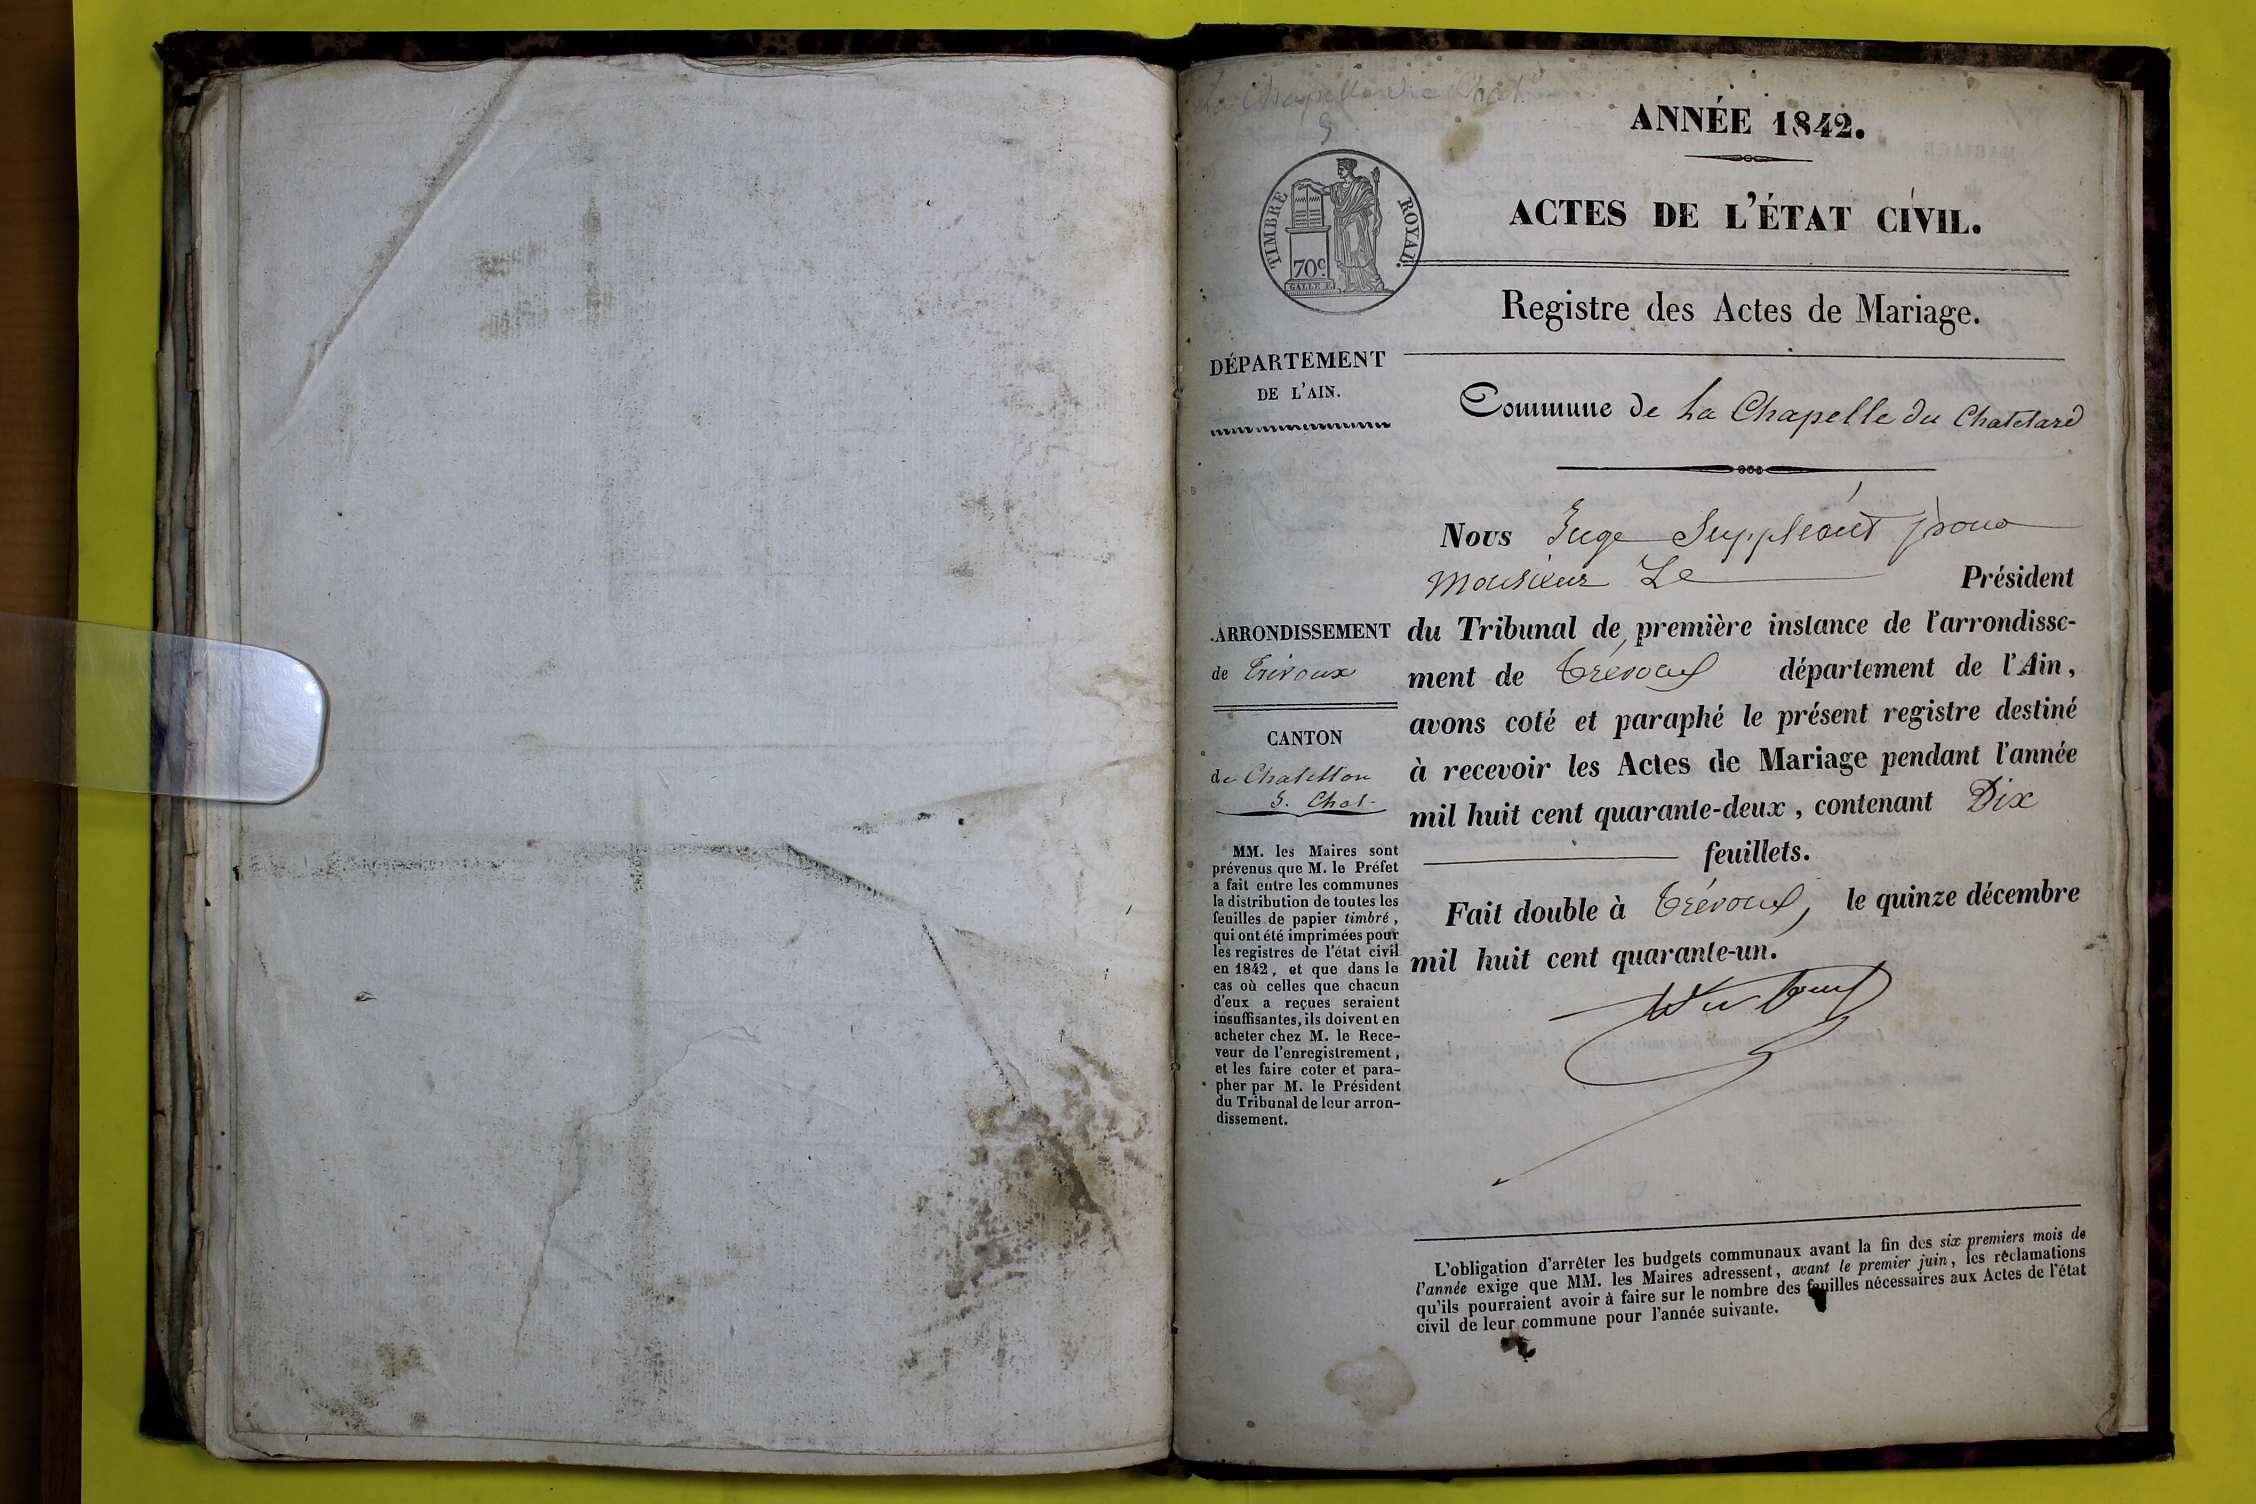 La Chapelle du Chat.
5
ANNÉE 1842.
ACTES DE L'ÉTAT CIVIL.
TIMBRE ROYAL.
70c.
Registre des Actes de Mariage.
DÉPARTEMENT
DE L'AIN.
Commune de La Chapelle du Chatelard
Nous Juge Suppléant pour
Monsieur Le Président
du Tribunal de première instance de l'arrondisse-
ment de Trévoux département de l'Ain,
avons coté et paraphé le présent registre destiné
à recevoir les Actes de Mariage pendant l'année
mil huit cent quarante-deux, contenant Dix
feuillets.
Fait double à Trévoux, le quinze décembre
mil huit cent quarante-un.
ARRONDISSEMENT
de Trévoux
CANTON
de Chatillon
S. Chal.
MM. les Maires sont
prévenus que M. le Préfet
a fait entre les communes
la distribution de toutes les
feuilles de papier timbré,
qui ont été imprimées pour
les registres de l'état civil
en 1842, et que dans le
cas où celles que chacun
d'eux a reçues seraient
insuffisantes, ils doivent en
acheter chez M. le Rece-
veur de l'enregistrement,
et les faire coter et para-
pher par M. le Président
du Tribunal de leur arron-
dissement.
L'obligation d'arrêter les budgets communaux avant la fin des six premiers mois de
l'année exige que MM. les Maires adressent, avant le premier juin, les réclamations
qu'ils pourraient avoir à faire sur le nombre des feuilles nécessaires aux Actes de l'état
civil de leur commune pour l'année suivante.